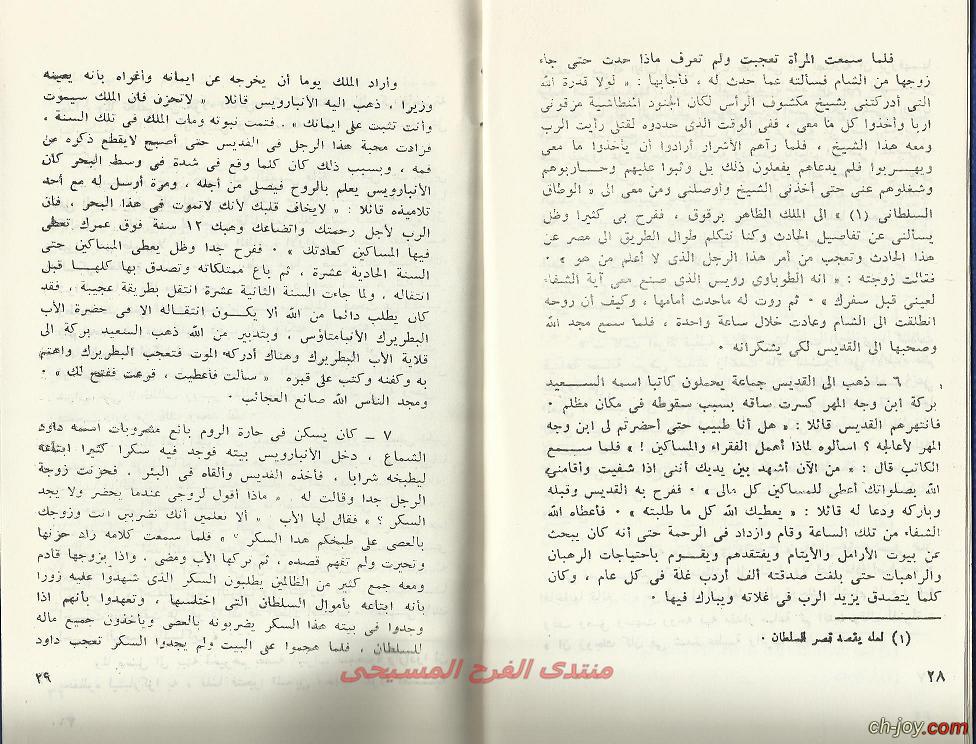 فلما سمعت المرأة تعجبت ولم تعرف ماذا حدث حتى جاء
زوجها من الشام فسألته عما حدث له ، فأجابها : « لولا قدرة الله
التى أدركتنى بشيخ مكشوف الرأس لكان الجنود مزقونى
اربا وأخذوا كل ما معى ، ففى الوقت الذى حددوه لقتلى رأيت الرب
ومعه هذا الشيخ ، فلما رآهم الأشرار أرادوا أن يأخذوا ما معى
ويهربوا فلم يدعاهم يفعلون ذلك بل وثبوا عليهم وحاربوهم
وشغلوهم عنى حتى أخذنى الشيخ وأوصلنى ومن معى الى « الوطاق
السلطانى (١) » الى الملك الظاهر برقوق ، ففرح بى كثيرا وظل
يسألنى عن تفاصيل الحادث وكنا نتكلم طوال الطريق الى مصر عن
هذا الحادث وتعجب من أمر هذا الرجل الذى لا أعلم من هو » ٠
فقالت زوجته : « انه الطوباوى رويس الذى صنع معى آية الشفاء
لعينى قبل سفرك » ٠ ثم روت له ماحدث أمامها ، وكيف أن روحه
انطلقت الى الشام وعادت خلال ساعة واحدة ، فلما سمع مجد الله
وصحبها الى القديس لكى يشكرانه ٠
٦ ــ ذهب الى القديس جماعة يحملون كاتبا اسمه السعيد
بركة ابن وجه المهر كسرت ساقه بسبب سقوطه فى مكان مظلم ٠
فانتهرهم القديس قائلا : « هل أنا طبيب حتى أحضرتم لى ابن وجه
المهر لأعالجه ؟ اسألوه لماذا أهمل الفقراء والمساكين ! » فلما سمع
الكاتب قال : « من الآن أشهد بين يديك أننى اذا شفيت وأقامنى
الله بصلواتك أعطى للمساكين كل مالى » ٠ ففرح به القديس وقبله
وباركه ودعا له قائلا : « يعطيك الله كل ما طلبته » ٠ فأعطاه الله
الشفاء من تلك الساعة وقام وازداد فى الرحمة حتى أنه كان يبحث
عن بيوت الأرامل والأيتام ويفتقدهم ويقوم باحتياجات الرهبان
والراهبات حتى بلغت صدقته ألف أردب غلة فى كل عام ، وكان
كلما يتصدق يزيد الرب فى غلاته ويبارك فيها ٠
(١) لعله يقصد قصر السلطان ٠
٢٨
وأراد الملك يوما أن يخرجه عن ايمانه وأغواه بأنه يعينه
وزيرا ، ذهب اليه الأنبارويس قائلا « لاتحزن فان الملك سيموت
وأنت تثبت على ايمانك » . فتمت نبوته ومات الملك فى تلك السنة ،
فزادت محبة هذا الرجل فى القديس حتى أصبح لايقطع ذكره من
فمه ، وبسبب ذلك كان كلما وقع فى شدة فى وسط البحر كان
الأنبارويس يعلم بالروح فيصلى من أجله ، ومرة أرسل له مع أحد
تلاميذه قائلا : « لايخاف قلبك لأنك لاتموت فى هذا البحر ، فان
الرب لأجل رحمتك واتضاعك وهبك ١٢ سنة فوق عمرك تعطى
فيها المساكين كعادتك » ٠ ففرح جدا وظل يعطى المساكين حتى
السنة الحادية عشرة ، ثم باع ممتلكاته وتصدق بها كلها قبل
انتقاله ، ولما جاءت السنة الثانية عشرة انتقل بطريقة عجيبة ، فقد
كان يطلب دائما من الله ألا يكون انتقاله الا فى حضرة الأب
البطريرك الأنبامتاؤس ، وبتدبير من الله ذهب السعيد بركة الى
قلاية الأب البطريرك وهناك أدركه الموت فتعجب البطريرك واهتم
به وكفنه وكتب على قبره « سألت فأعطيت ، قرعت ففتح لك » ٠
ومجد الناس الله صانع العجائب ٠
٧ ــ كان يسكن فى حارة الروم بائع مشروبات اسمه داود
الشماع ، دخل الأنبارويس بيته فوجد فيه سكرا كثيرا ابتاعه
ليطبخه شرابا ، فأخذه القديس وألقاه فى البئر . فحزنت زوجة
الرجل جدا وقالت له . « ماذا أقول لزوجى عندما يحضر ولا يجد
السكر ؟ » فقال لها الأب . « ألا تعلمين أنك تضربين أنت وزوجك
بالعصى على طبخكم هذا السكر » فلما سمعت كلامه زاد حزنها
وتحيرت ولم تفهم قصده ، ثم تركها الأب ومضى . واذا بزوجها قادم
ومعه جمع كثير من الظالمين يطلبون السكر الذى شهدوا عليه زورا
بأنه ابتاعه بأموال السلطان التى اختلسها ، وتعهدوا بأنهم اذا
وجدوا فى بيته هذا السكر يضربونه بالعصى ويأخذون جميع ماله
للسلطان ، فلما هجموا على البيت ولم يجدوا السكر تعجب داود
٢٩
منتدى الفرح المسيحى
ch-joy.com